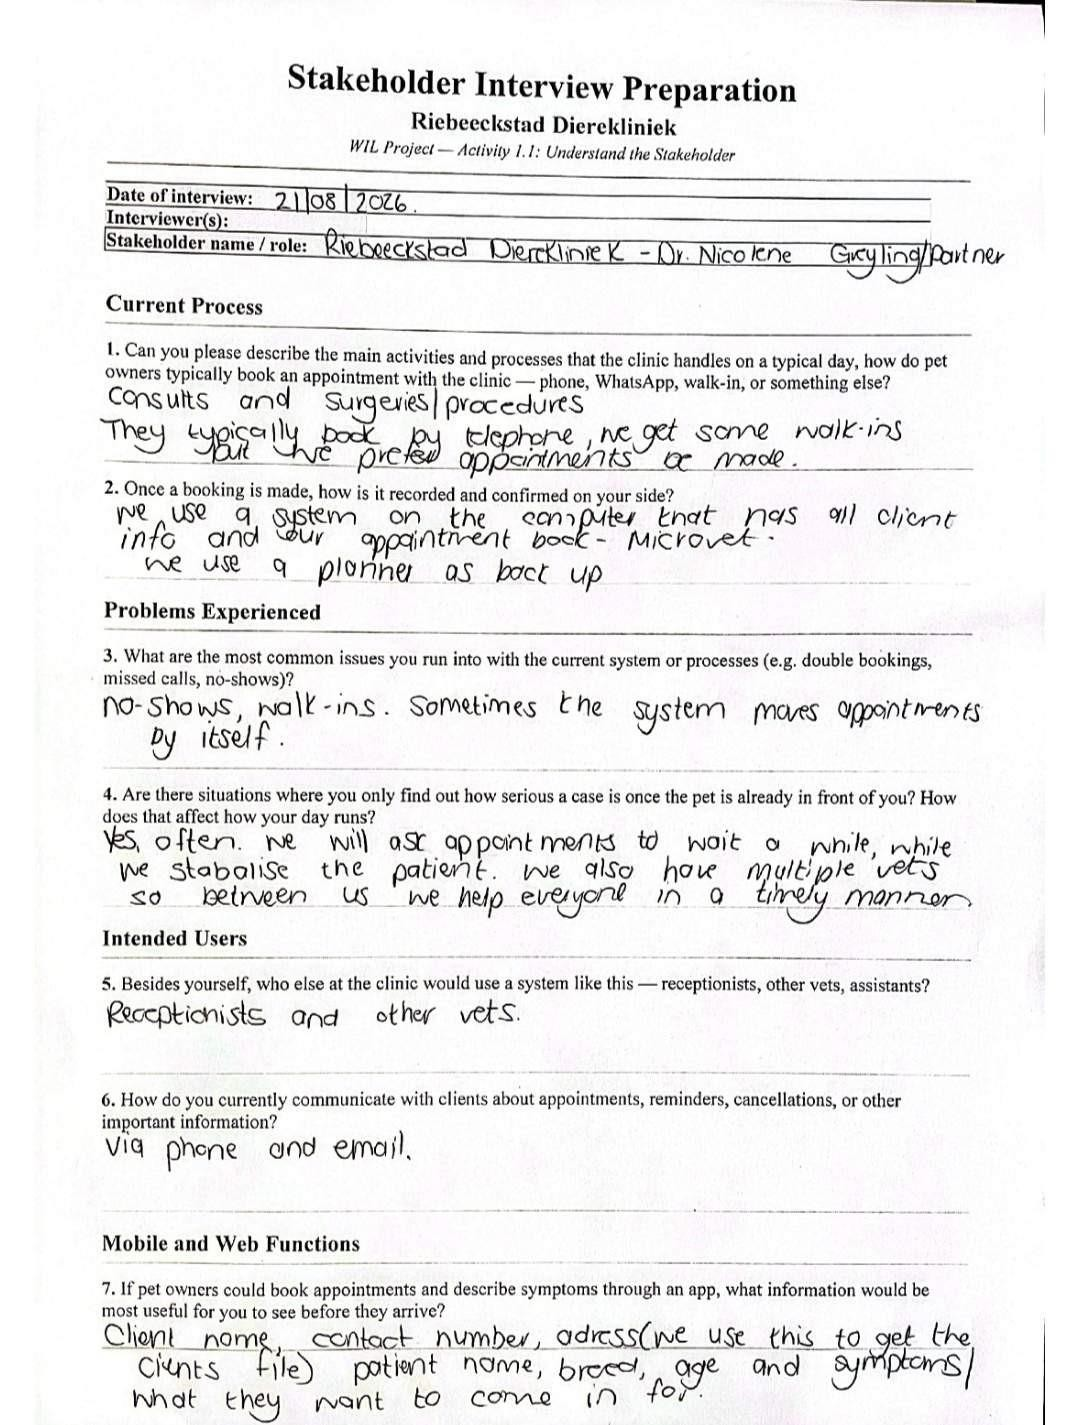 Stakeholder Interview Preparation
Riebeeckstad Dierekliniek
WIL Project — Activity 1.1: Understand the Stakeholder
Date of interview: 21/08/2026.
Interviewer(s):
Stakeholder name / role: Riebeeckstad Dierekliniek - Dr. Nicolene Greyling/Partner
Current Process
1. Can you please describe the main activities and processes that the clinic handles on a typical day, how do pet
owners typically book an appointment with the clinic — phone, WhatsApp, walk-in, or something else?
Consults and surgeries/procedures
They typically book by telephone, we get some walk-ins
but we prefer appointments be made.
2. Once a booking is made, how is it recorded and confirmed on your side?
we use a system on the computer that has all client
info and our appointment book - Microvet.
we use a planner as back up
Problems Experienced
3. What are the most common issues you run into with the current system or processes (e.g. double bookings,
missed calls, no-shows)?
no-shows, walk-ins. Sometimes the system moves appointments
by itself.
4. Are there situations where you only find out how serious a case is once the pet is already in front of you? How
does that affect how your day runs?
Yes, often. we will ask appointments to wait a while, while
we stabalise the patient. we also have multiple vets
so between us we help everyone in a timely manner.
Intended Users
5. Besides yourself, who else at the clinic would use a system like this — receptionists, other vets, assistants?
Receptionists and other vets.
6. How do you currently communicate with clients about appointments, reminders, cancellations, or other
important information?
Via phone and email.
Mobile and Web Functions
7. If pet owners could book appointments and describe symptoms through an app, what information would be
most useful for you to see before they arrive?
Client name, contact number, adress(we use this to get the
clients file) patient name, breed, age and symptoms/
what they want to come in for.